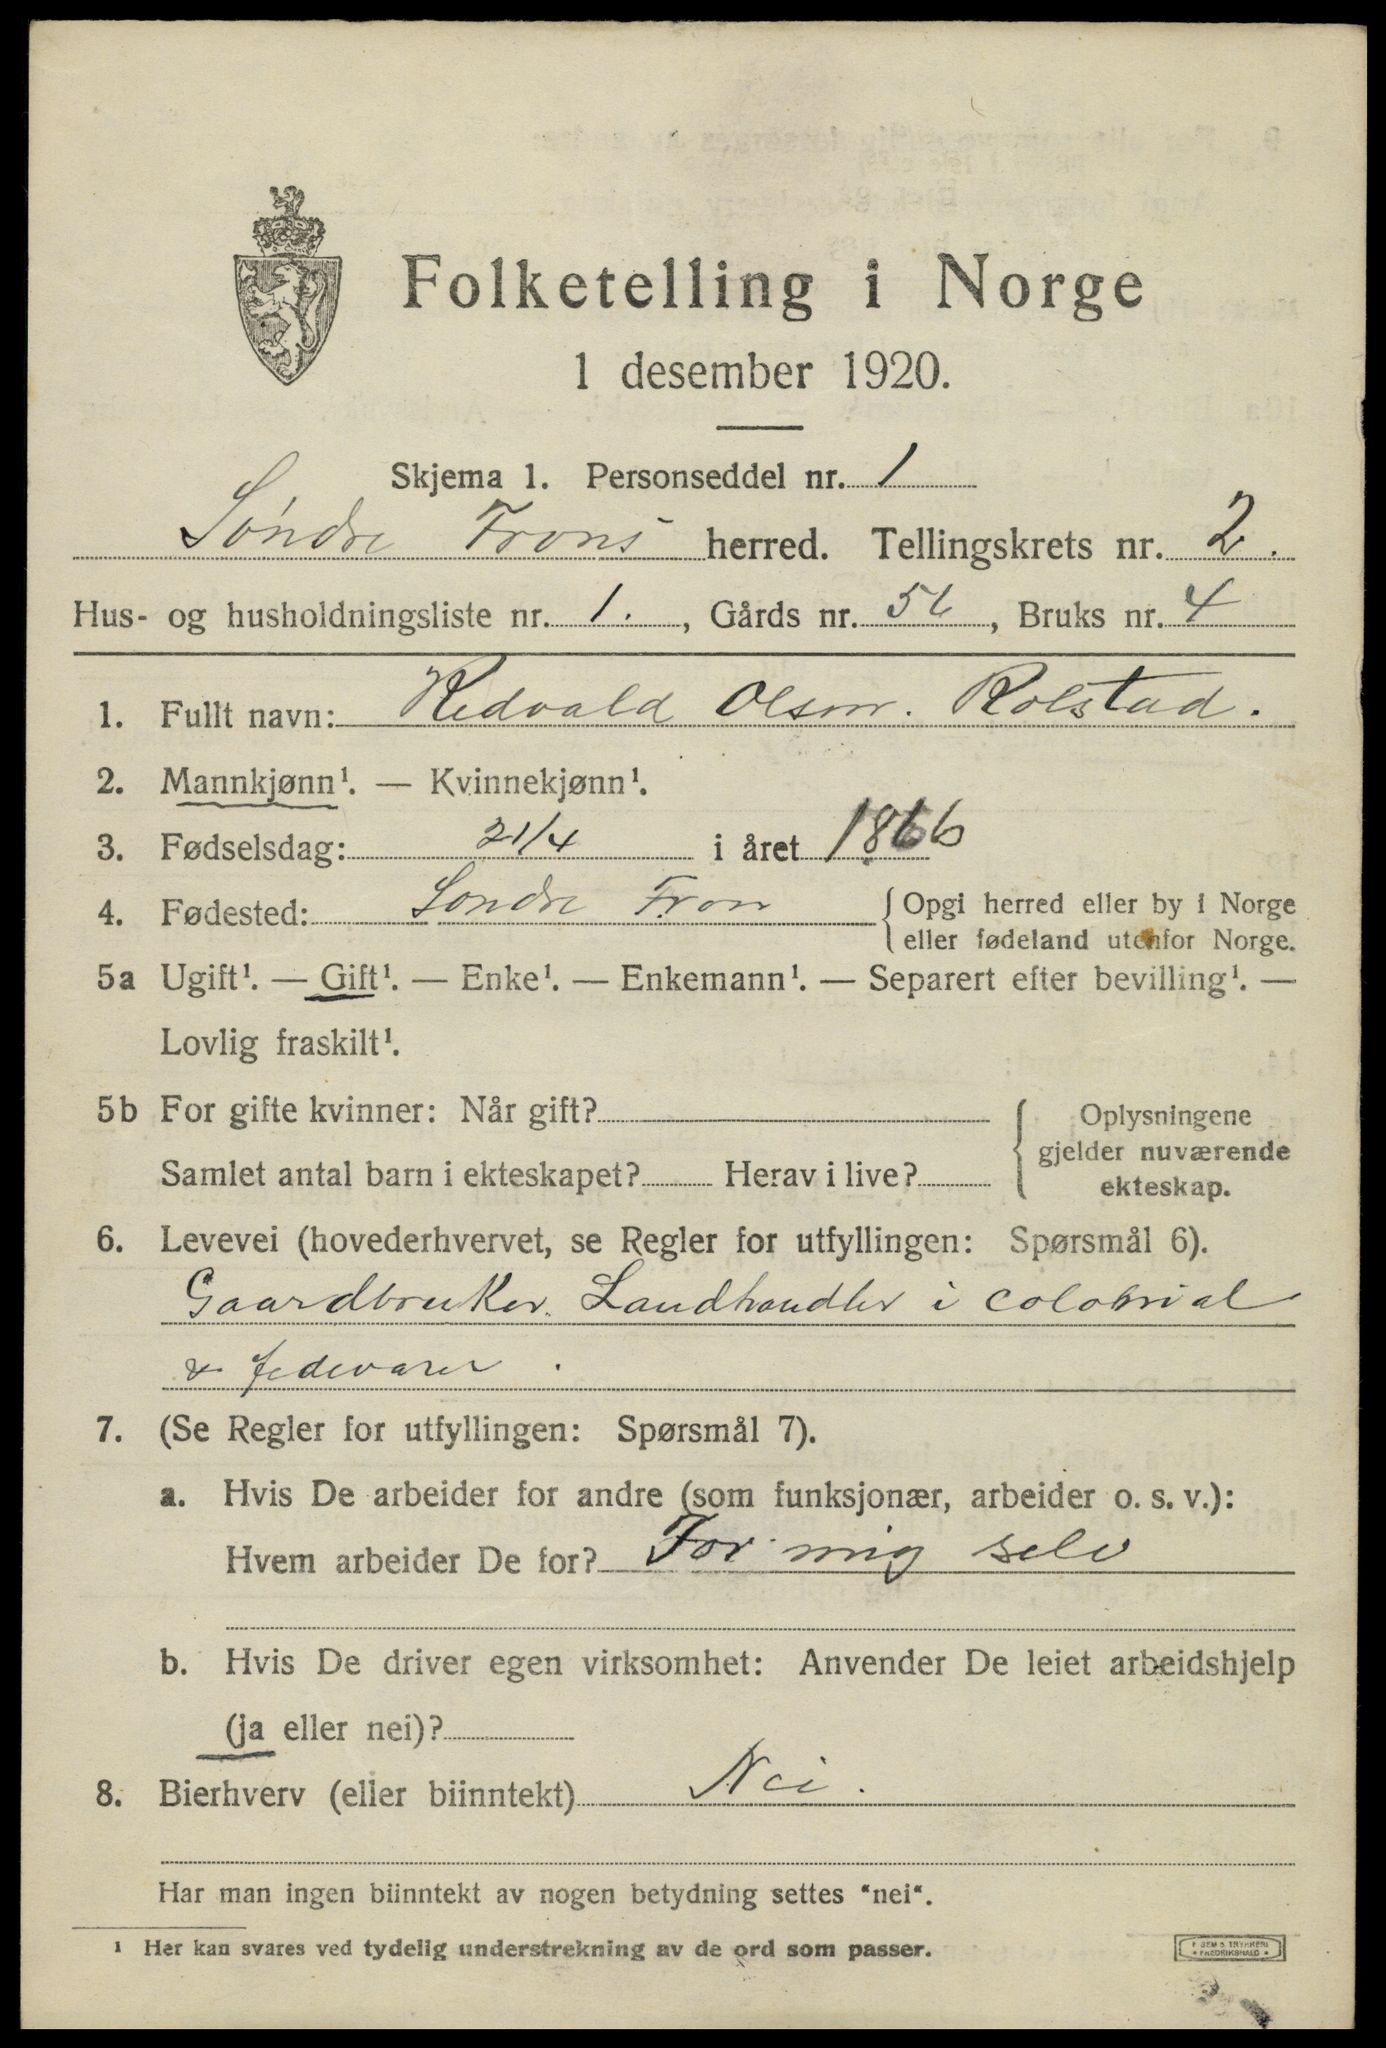 Folketelling i Norge
1 desember 1920.
Skjema 1. Personseddel nr. 1
Søndre Frons herred. Tellingskrets nr. 2.
Hus- og husholdningsliste nr. 1., Gårds nr. 56, Bruks nr. 4
1. Fullt navn: Redvald Olsen. Rolstad.
2. Mannkjønn¹. — Kvinnekjønn¹.
3. Fødselsdag: 21/4 i året 1866
4. Fødested: Søndre Fron { Opgi herred eller by i Norge
eller fødeland utenfor Norge.
5a Ugift¹. — Gift¹. — Enke¹. — Enkemann¹. — Separert efter bevilling¹. —
Lovlig fraskilt¹.
5b For gifte kvinner: Når gift?
Samlet antal barn i ekteskapet? Herav i live?
{ Oplysningene
gjelder nuværende
ekteskap.
6. Levevei (hovederhvervet, se Regler for utfyllingen: Spørsmål 6).
Gaardbruker. Landhandler i colonial
& fedevarer.
7. (Se Regler for utfyllingen: Spørsmål 7).
a. Hvis De arbeider for andre (som funksjonær, arbeider o. s. v.):
Hvem arbeider De for? For mig selv
b. Hvis De driver egen virksomhet: Anvender De leiet arbeidshjelp
(ja eller nei)?
8. Bierhverv (eller biinntekt) Nei.
Har man ingen biinntekt av nogen betydning settes "nei".
¹ Her kan svares ved tydelig understrekning av de ord som passer.
E SEM'S TRYKKERI
• FREDRIKSHALD •